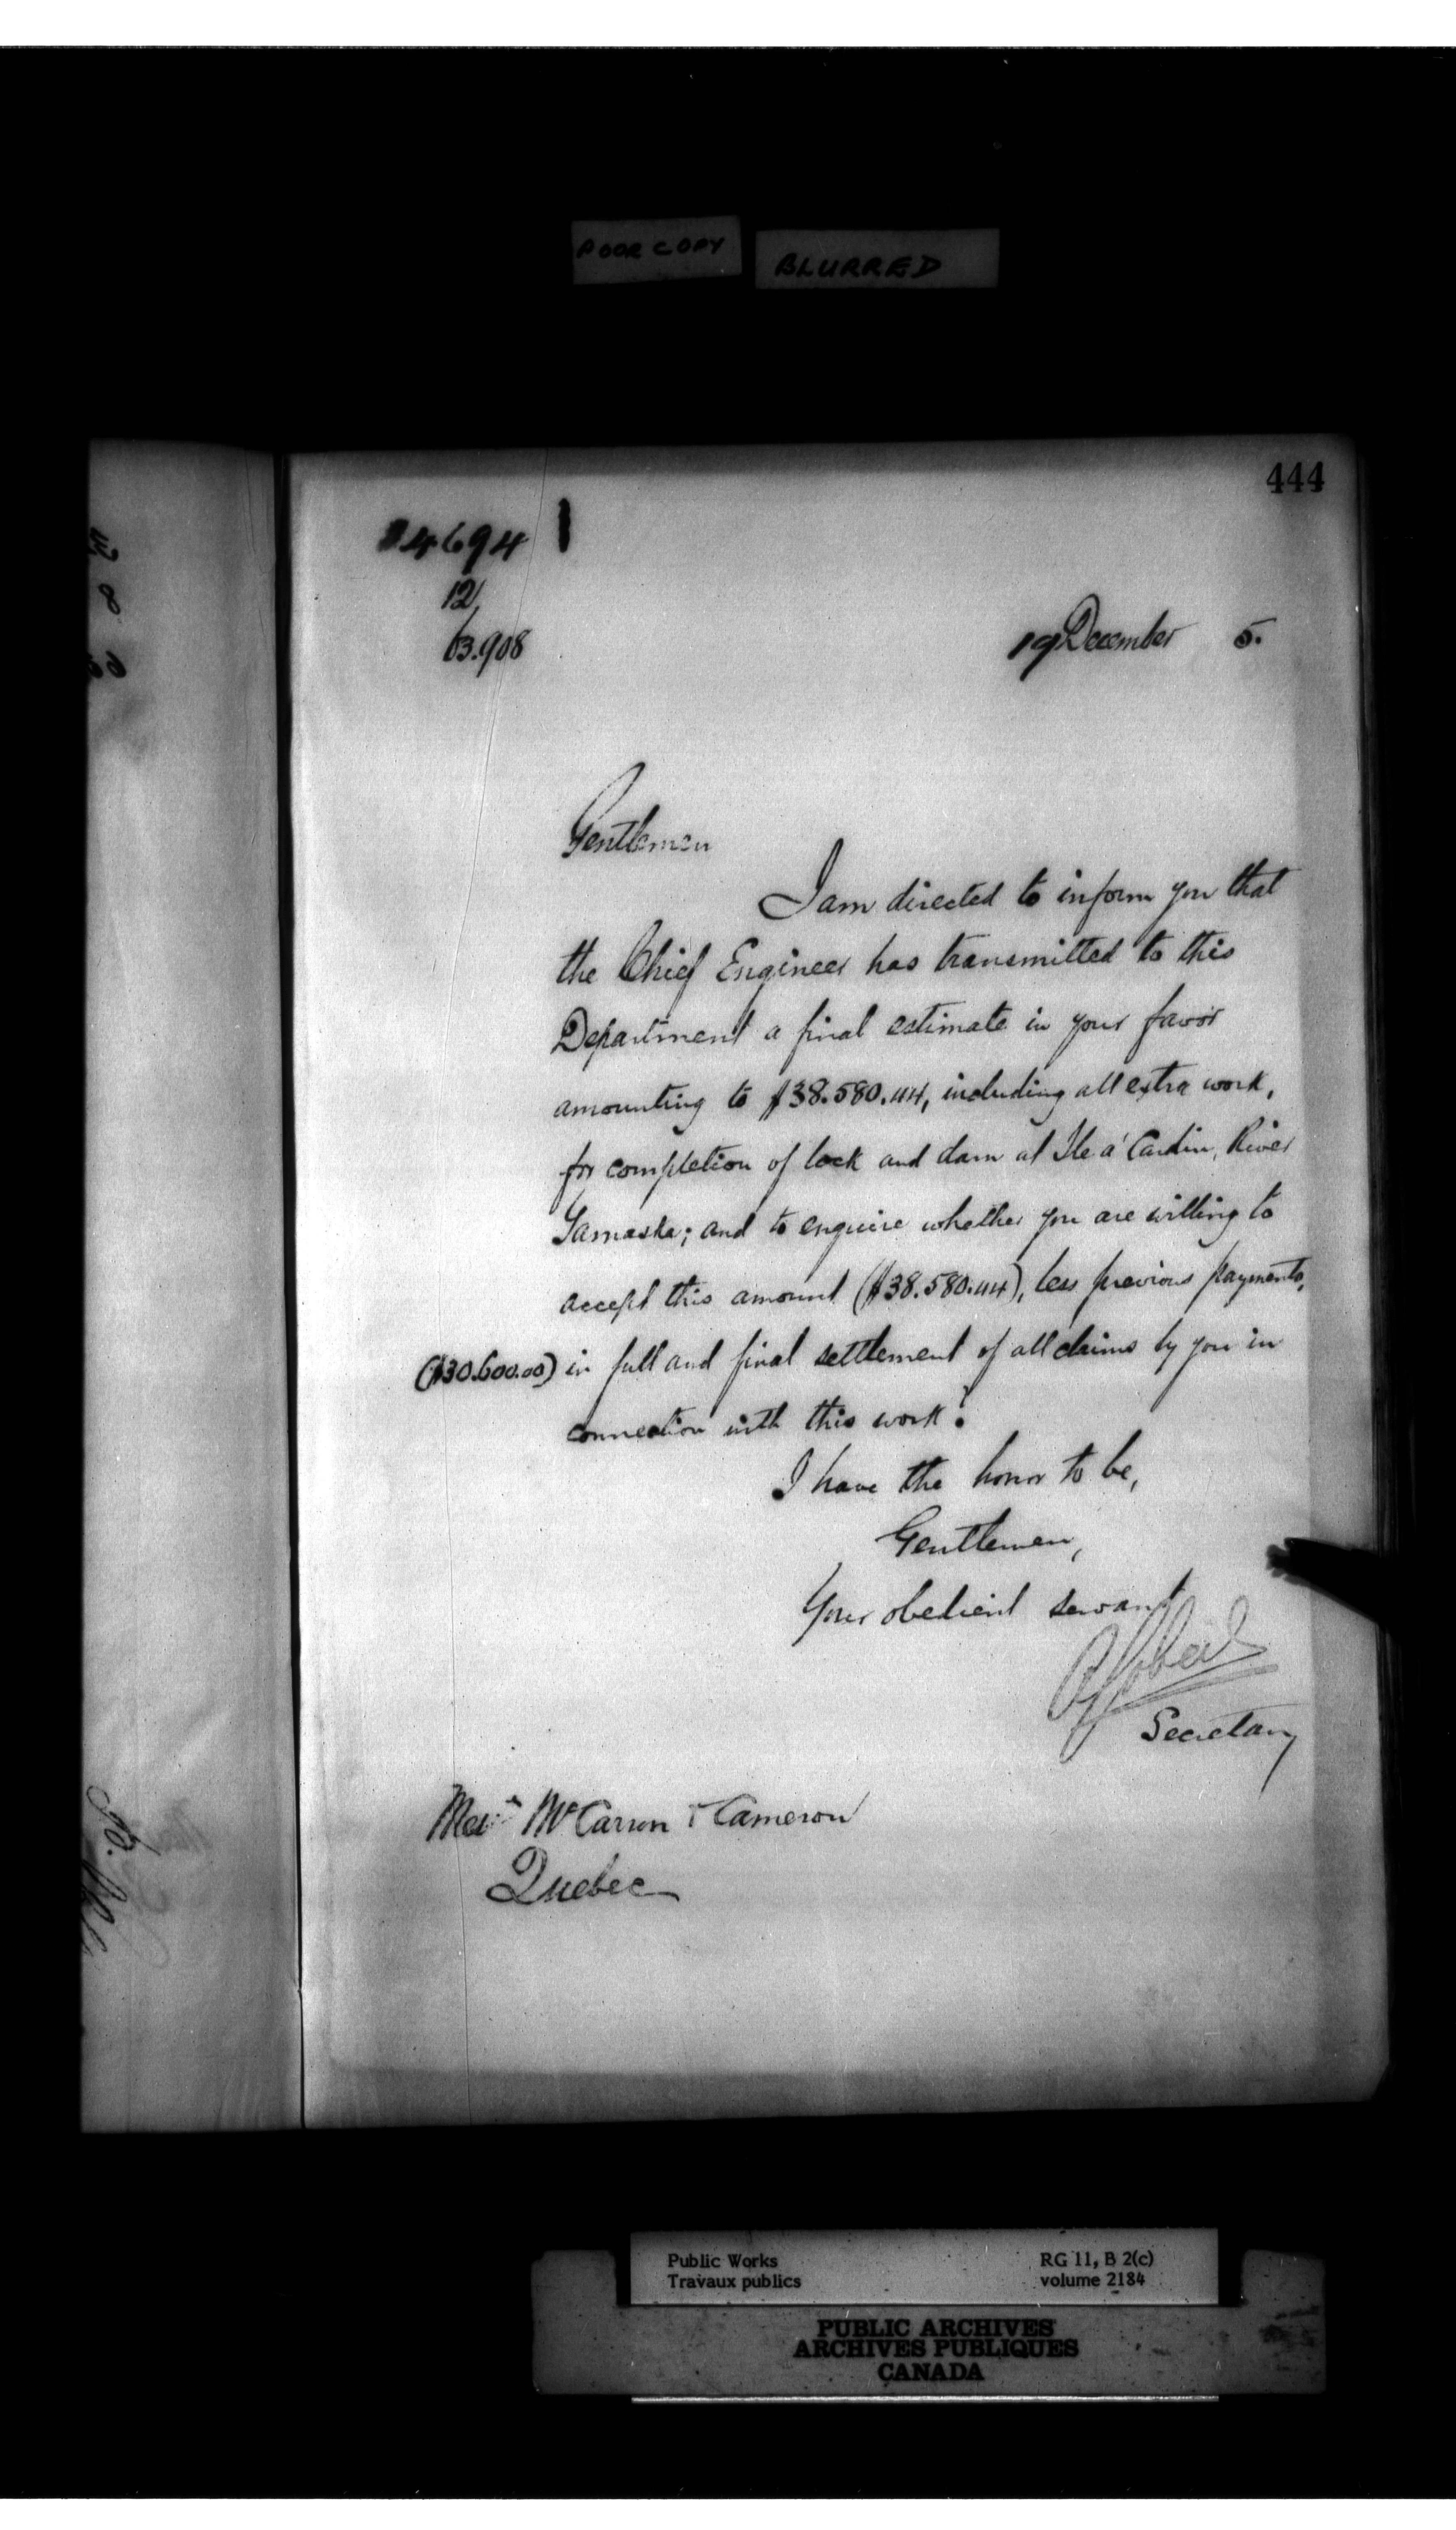 POOR COPY
BLURRED
444
4694
12
63.908
19 December 5.
Gentlemen
I am directed to inform you that
the Chief Engineer has transmitted to this
Department a final estimate in your favor
amounting to $38.580.44, including all extra work,
for completion of lock and dam at Ile à Cardin, River
Yamaska; and to enquire whether you are willing to
accept this amount ($38.580.44), less previous payments,
($30.600.00) in full and final settlement of all claims by you in
connection with this work?
I have the honor to be,
Gentlemen,
Your obedient servant
Secretary
Messrs McCarron & Cameron
Quebec
Public Works
Travaux publics
RG 11, B 2(c)
volume 2184
PUBLIC ARCHIVES
ARCHIVES PUBLIQUES
CANADA